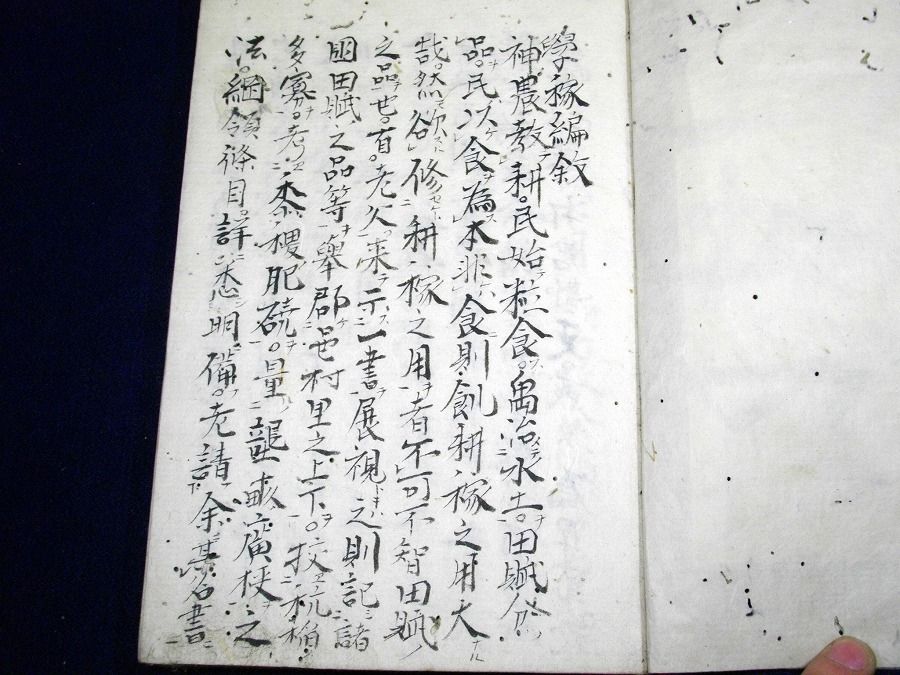 學稼編敘
神農教耕民始粒食禹治水土田賦分
品民以食為本非食則飢耕稼之用大
哉然欲修耕稼之用者不可不智田賦
之品也有老父來示一書展視之則記諸
國田賦之品等舉郡邑村里之上下挍杭稻
多寡考黍稷肥磽量壟畝廣之
法綱領條目詳悉明備老請余其名書